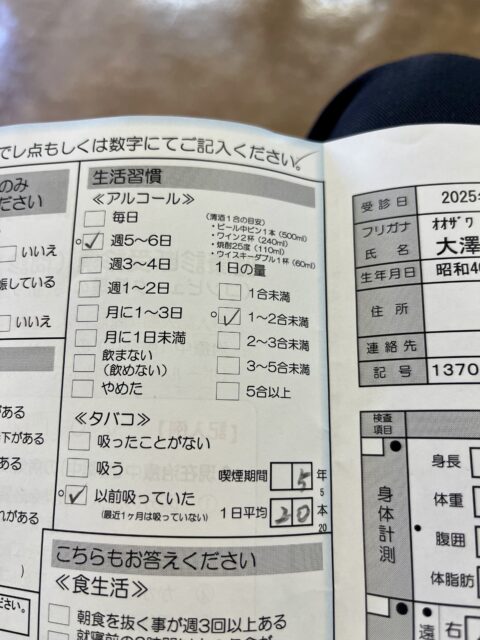 でレ点もしくは数字にてご記入ください。
のみ
ださい
いいえ
している
いいえ
がある
下がある
ある
れがある
)
ださい。
生活習慣
≪アルコール≫
(清酒1合の目安)
・ビール中ビン1本(500ml)
・ワイン2杯(240ml)
・焼酎25度(110ml)
・ウイスキーダブル1杯(60ml)
毎日
週5～6日
週3～4日
週1～2日
月に1～3日
月に1日未満
飲まない
(飲めない)
やめた
1日の量
1合未満
1～2合未満
2～3合未満
3～5合未満
5合以上
≪タバコ≫
吸ったことがない
吸う
以前吸っていた
(最近1ヶ月は吸っていない)
喫煙期間 5 年
5
1日平均 20 本
20
こちらもお答えください
≪食生活≫
朝食を抜く事が週3回以上ある
受診日 2025
フリガナ オオザワ
氏名 大澤
生年月日 昭和4
住所
連絡先
記号 1370
検査
項目
身体計測
身長
体重
腹囲
体脂肪
遠
右